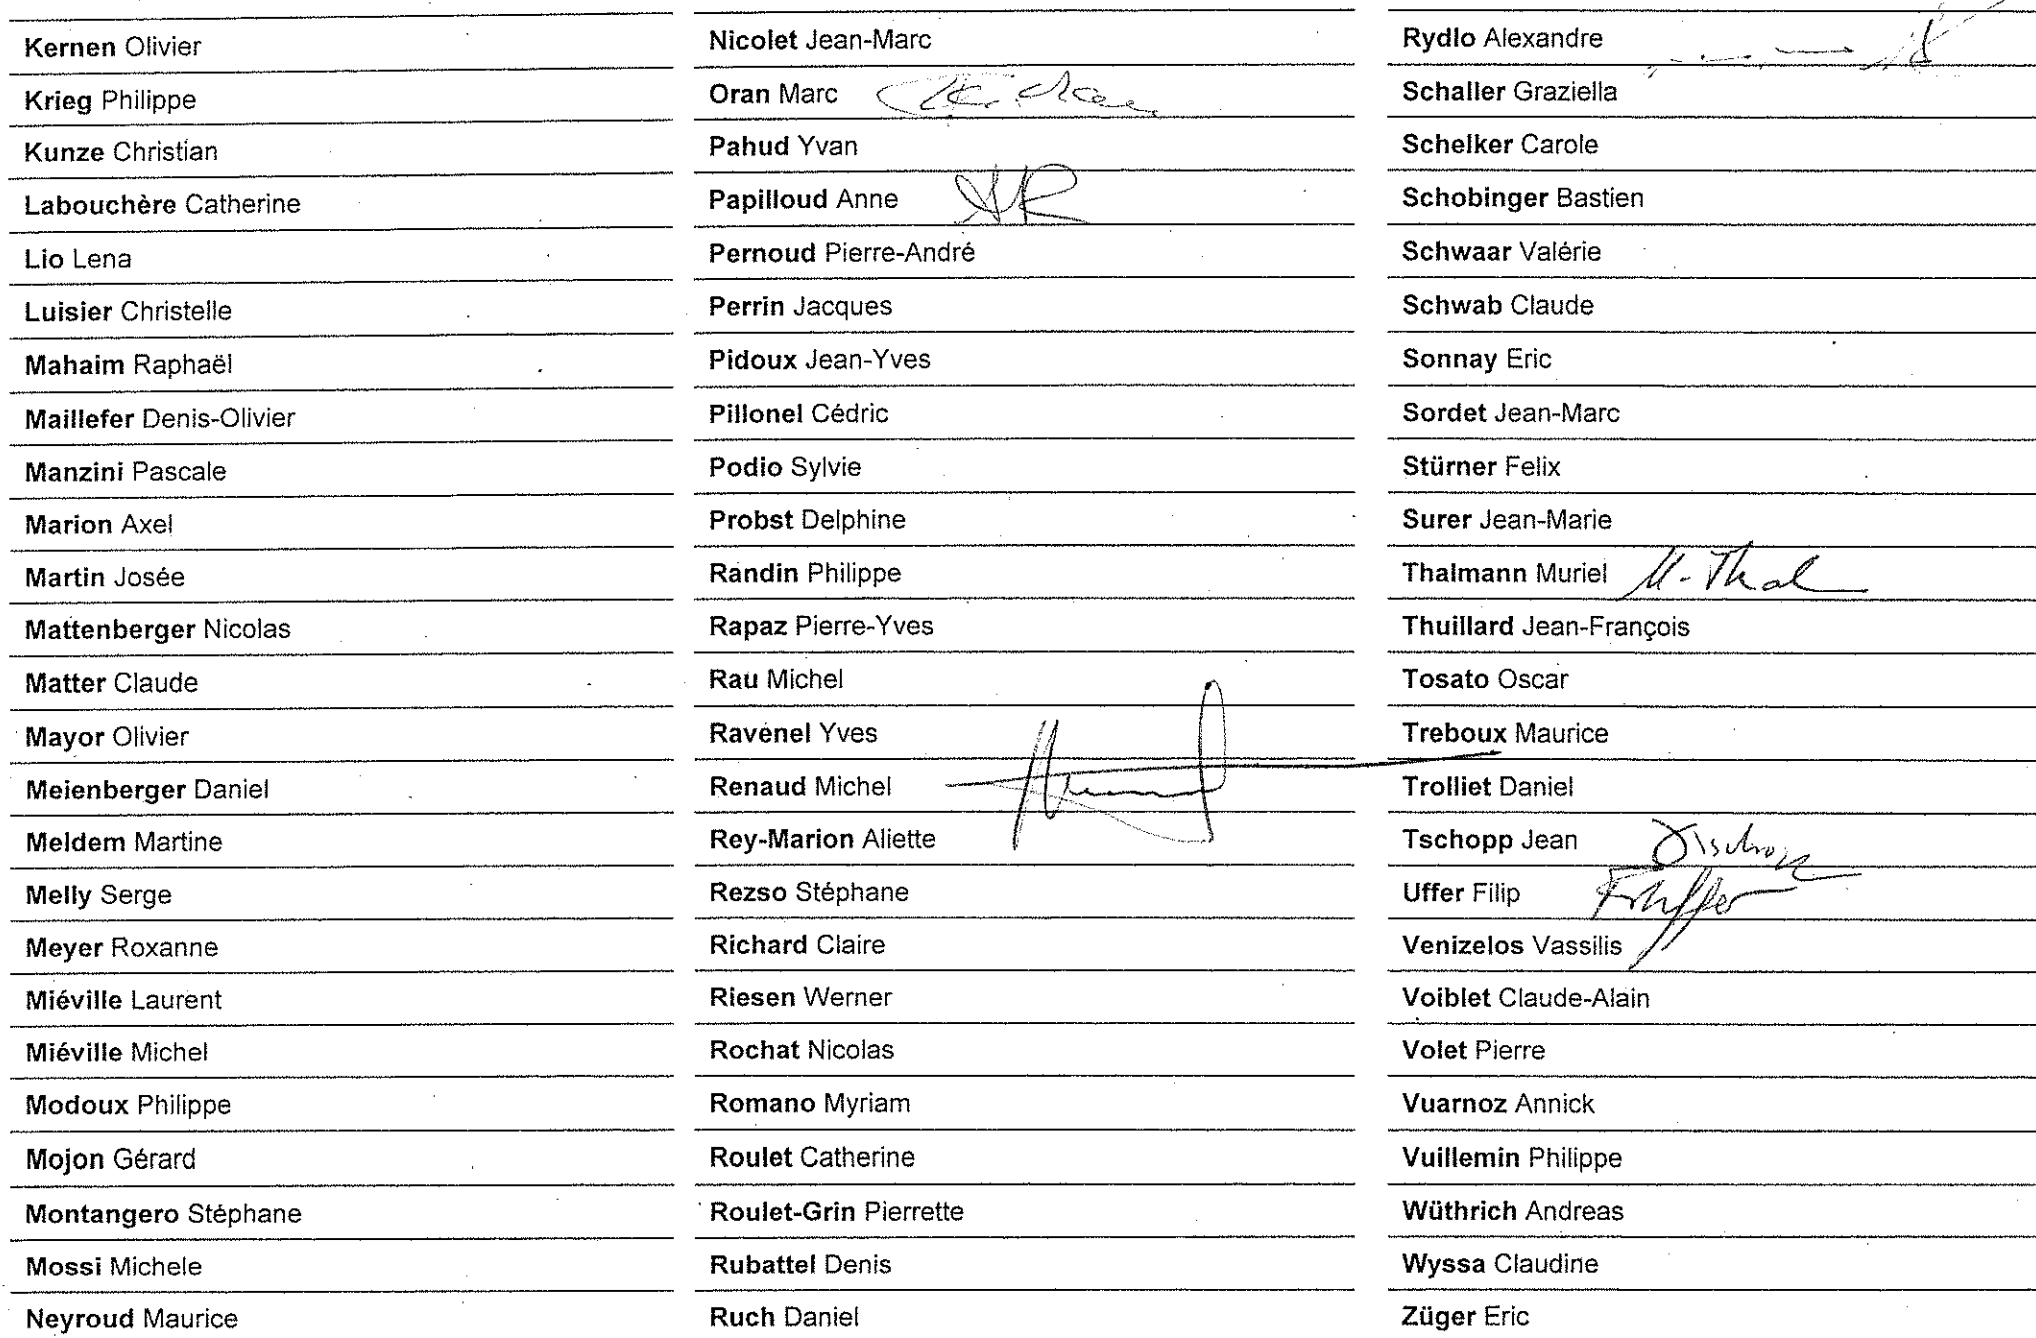 Kernen Olivier
Krieg Philippe
Kunze Christian
Labouchère Catherine
Lio Lena
Luisier Christelle
Mahaim Raphaël
Maillefer Denis-Olivier
Manzini Pascale
Marion Axel
Martin Josée
Mattenberger Nicolas
Matter Claude
Mayor Olivier
Meienberger Daniel
Meldem Martine
Melly Serge
Meyer Roxanne
Miéville Laurent
Miéville Michel
Modoux Philippe
Mojon Gérard
Montangero Stéphane
Mossi Michele
Neyroud Maurice
Nicolet Jean-Marc
Oran Marc
Pahud Yvan
Papilloud Anne
Pernoud Pierre-André
Perrin Jacques
Pidoux Jean-Yves
Pillonel Cédric
Podio Sylvie
Probst Delphine
Randin Philippe
Rapaz Pierre-Yves
Rau Michel
Ravenel Yves
Renaud Michel
Rey-Marion Aliette
Rezso Stéphane
Richard Claire
Riesen Werner
Rochat Nicolas
Romano Myriam
Roulet Catherine
Roulet-Grin Pierrette
Rubattel Denis
Ruch Daniel
Rydlo Alexandre
Schaller Graziella
Schelker Carole
Schobinger Bastien
Schwaar Valérie
Schwab Claude
Sonnay Eric
Sordet Jean-Marc
Stürner Felix
Surer Jean-Marie
Thalmann Muriel M. Thal
Thuillard Jean-François
Tosato Oscar
Treboux Maurice
Trolliet Daniel
Tschopp Jean
Uffer Filip
Venizelos Vassilis
Voiblet Claude-Alain
Volet Pierre
Vuarnoz Annick
Vuillemin Philippe
Wüthrich Andreas
Wyssa Claudine
Züger Eric